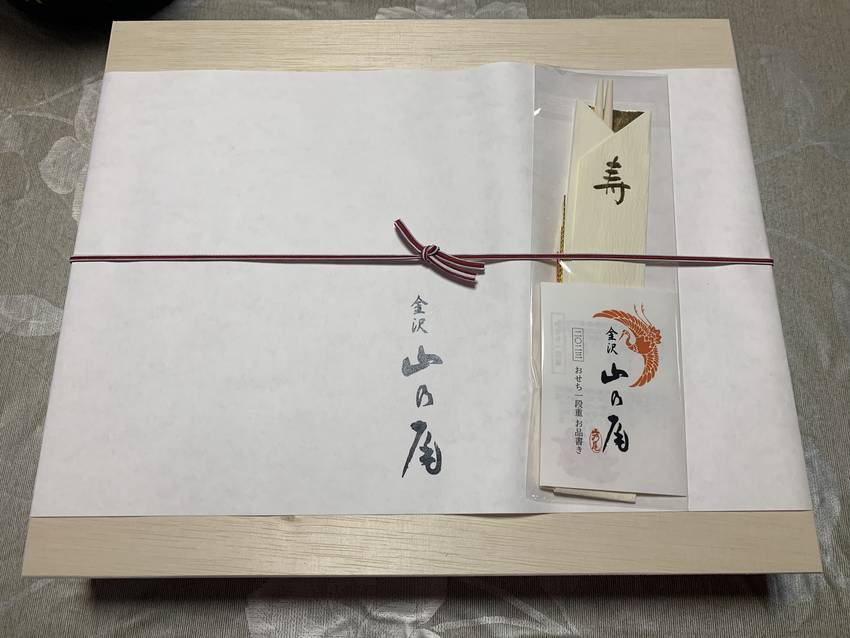 寿
金沢
山乃尾
金沢
山乃尾
二〇二三 おせち一段重 お品書き